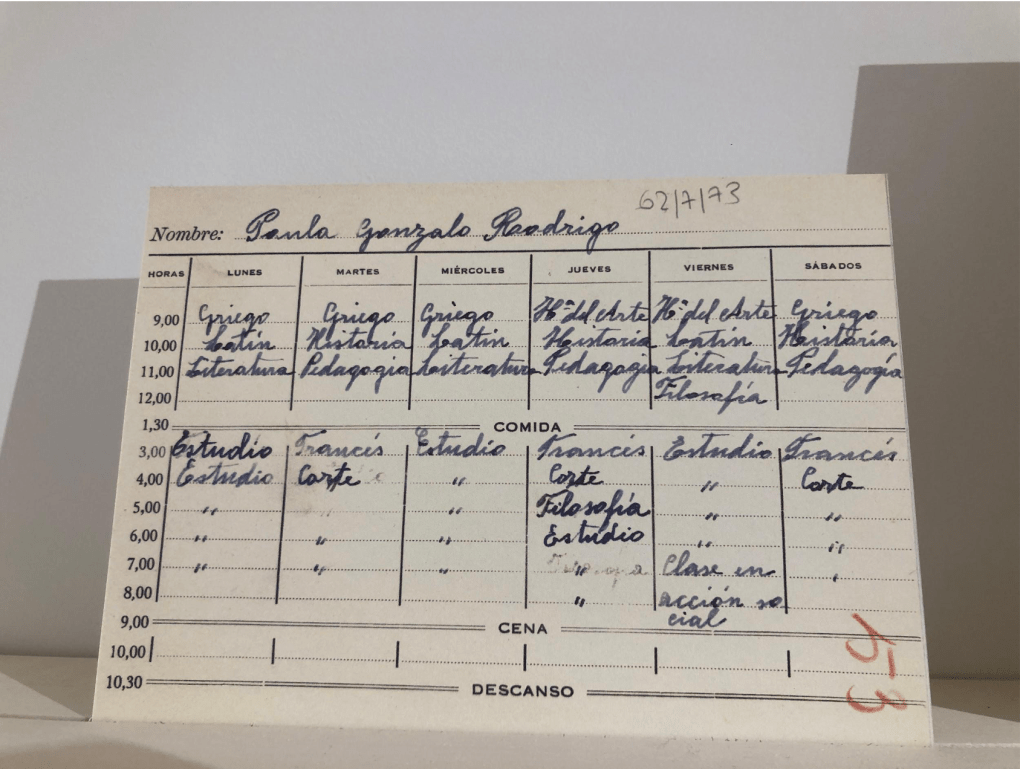 62/7/73
Nombre: Paula Gonzalo Rodrigo
HORAS LUNES MARTES MIÉRCOLES JUEVES VIERNES SÁBADOS
9,00 Griego Griego Griego Hª del Arte Hª del Arte Griego
10,00 Latín Historia Latín Historia Latín Historia
11,00 Literatura Pedagogia Literatura Pedagogia Literatura Pedagogía
12,00 Filosofía
1,30 COMIDA
3,00 Estudio Francés Estudio Francés Estudio Francés
4,00 Estudio Corte " Corte " Corte
5,00 " " Filosofía " "
6,00 " " " Estudio " "
7,00 " " " " Clase en "
8,00 " acción so
cial
9,00 CENA
10,00
10,30 DESCANSO
53